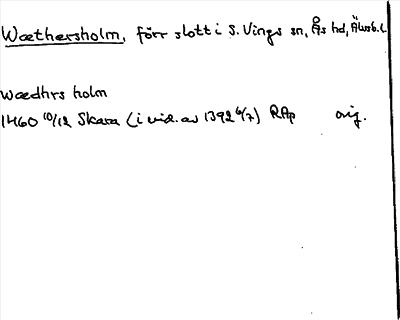 Wæthersholm, förr slott i S. Vings sn, Ås hd, Älvsb. l.
wædhrs holm
1460 10/12 Skara (i vid. av 1392 6/7) RAp orig.